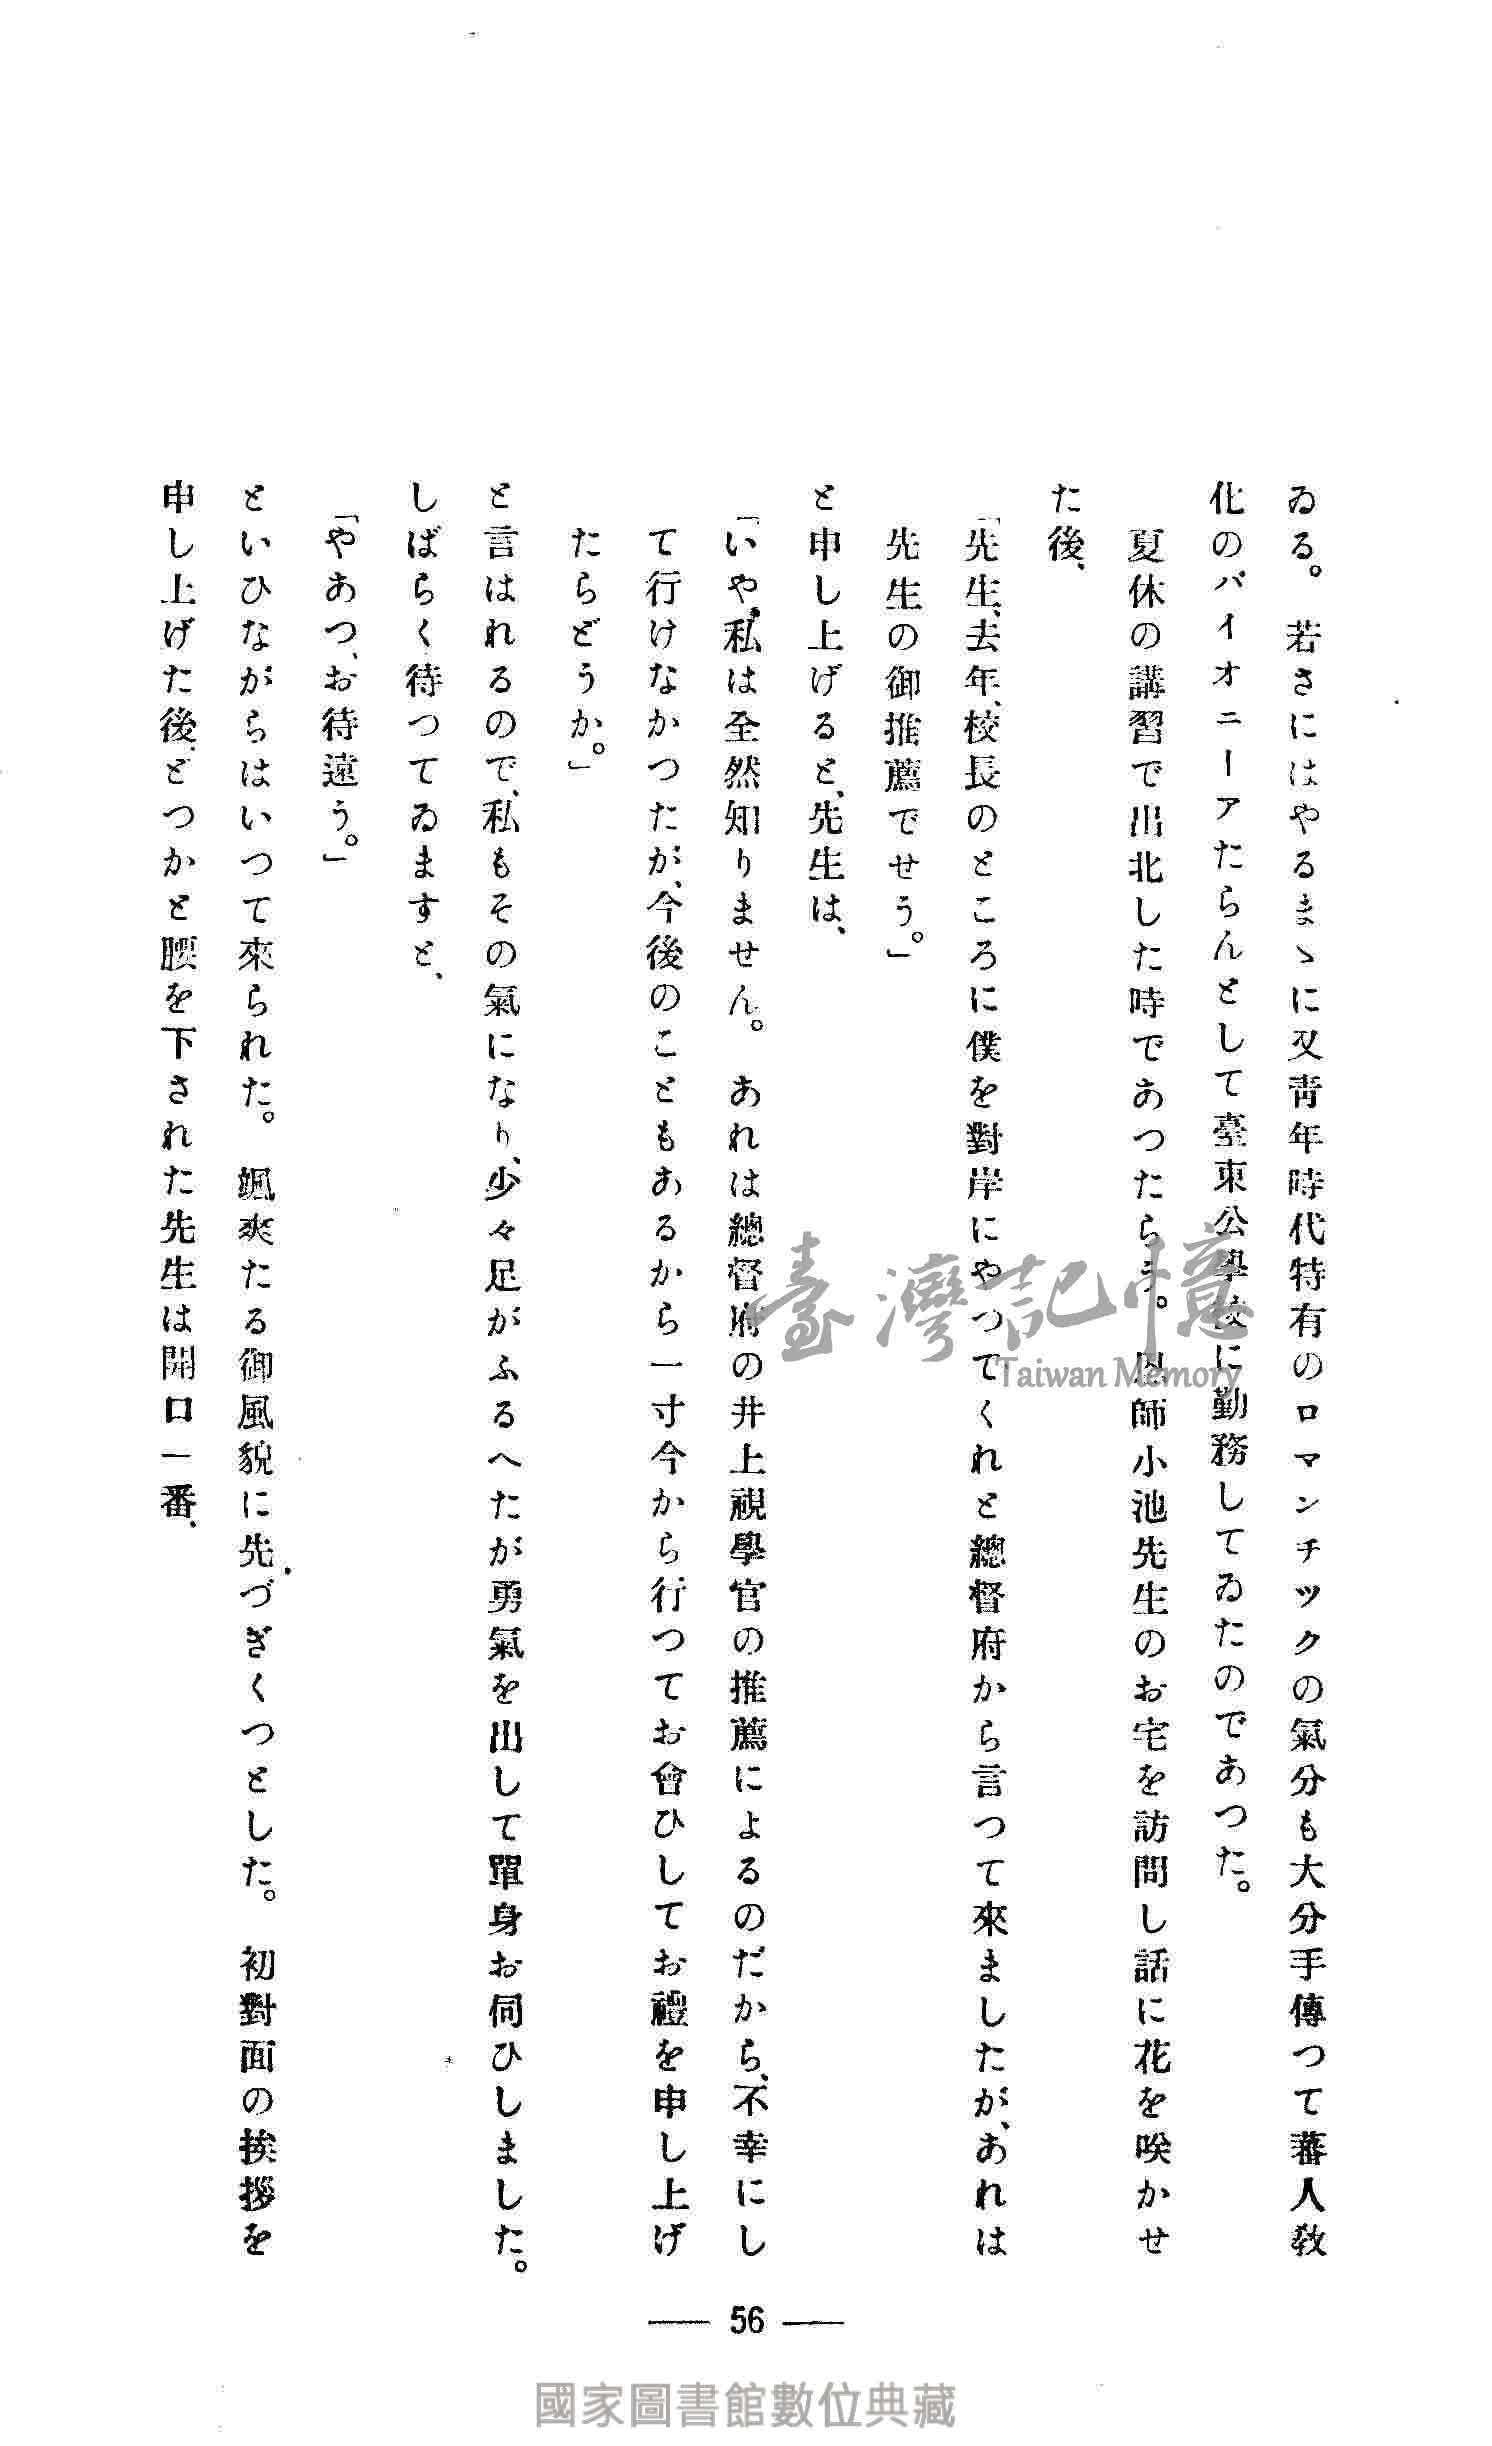 ゐる。若さにはやるまゝに又靑年時代特有のロマンチックの氣分も大分手傳つて蕃人敎
化のパイオニーアたらんとして臺東公學校に勤務してゐたのであつた。
夏休の講習で出北した時であつたらう。恩師小池先生のお宅を訪問し話に花を咲かせ
た後、
「先生、去年、校長のところに僕を對岸にやつてくれと總督府から言つて來ましたが、あれは
先生の御推薦でせう。」
と申し上げると、先生は、
「いや、私は全然知りません。あれは總督府の井上視學官の推薦によるのだから、不幸にし
て行けなかつたが、今後のこともあるから一寸今から行つてお會ひしてお禮を申し上げ
たらどうか。」
と言はれるので、私もその氣になり、少々足がふるへたが勇氣を出して單身お伺ひしました。
しばらく待つてゐますと、
「やあつ、お待遠う。」
といひながらはいつて來られた。颯爽たる御風貌に先づぎくつとした。初對面の挨拶を
申し上げた後、どつかと腰を下された先生は開口一番、
— 56 —
臺灣記憶
Taiwan Memory
國家圖書館數位典藏